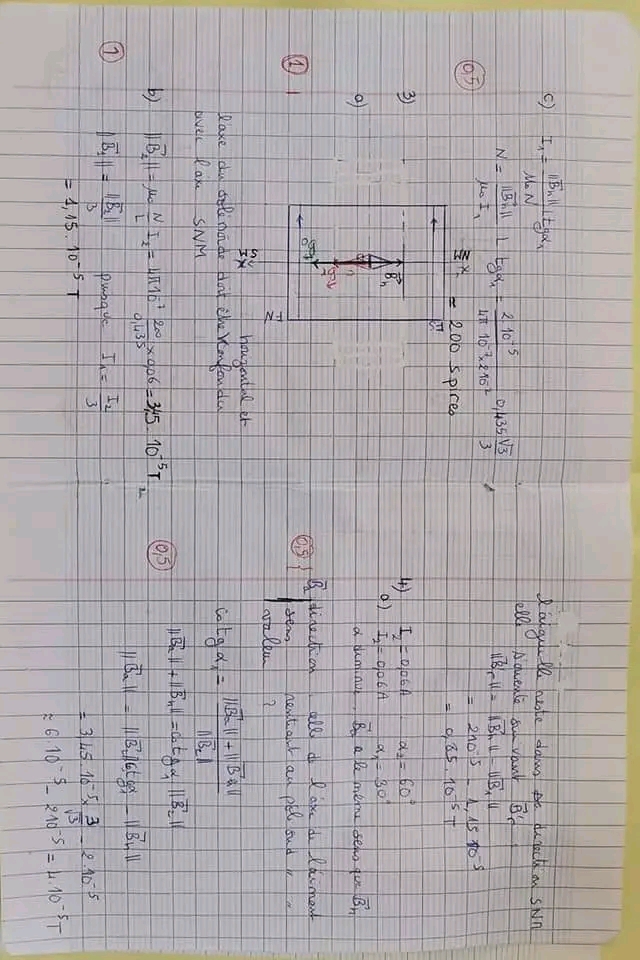 0,5
c) I₁ = ||B⃗h|| L tgα₁ / μ₀ N
N = ||B⃗h|| L tgα₁ / μ₀ I₁ = 2 10⁻⁵ / 4π 10⁻⁷ × 2 10⁻² 0,435 √3 / 3
≈ 200 spires
1
3)
a)
B⃗h
l'axe du solénoïde doit être horizontal et
confondu
avec l'axe SNM
b) ||B⃗₂|| = μ₀ N/L I₂ = 4π 10⁻⁷ 200/0,435 × 0,06 = 3,45 . 10⁻⁵ T
1
||B⃗₁|| = ||B⃗₂|| / 3 puisque I₁ = I₂ / 3
= 1,15 . 10⁻⁵ T
l'aiguille reste dans sa direction SNM
elle s'oriente suivant B⃗r
||B⃗r|| = ||B⃗h|| - ||B⃗₁||
= 2 10⁻⁵ - 1,15 10⁻⁵
= 0,85 . 10⁻⁵ T
4) I₂ = 0,06 A α₂ = 60°
a) I₂ = 0,06 A α₁ = 30°
α diminue, B⃗a a le même sens que B⃗h
0,5
B⃗a direction : celle de l'axe de l'aimant
sens rentrant au pôle sud " "
valeur ?
cotg α₁ = ||B⃗a|| + ||B⃗h|| / ||B⃗₂||
0,5
||B⃗a|| + ||B⃗h|| = cotg α₁ ||B⃗₂||
||B⃗a|| = ||B⃗₂|| cotg α₁ - ||B⃗h||
= 3,45 . 10⁻⁵ × 3/√3 - 2 . 10⁻⁵
≈ 6 10⁻⁵ - 2 10⁻⁵ = 4 . 10⁻⁵ T